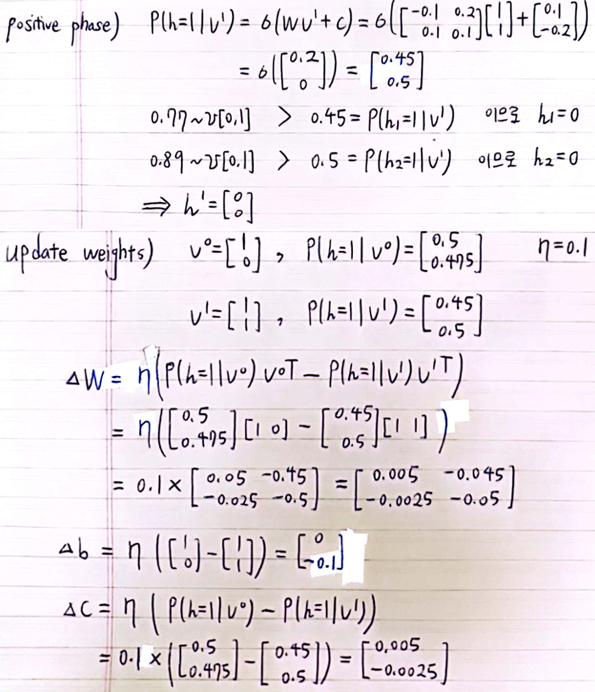 positive phase) P(h=1|v') = 6(Wv'+c) = 6([-0.1 0.2; 0.1 0.1][1; 1]+[0.1; -0.2])
= 6([0.2; 0]) = [0.45; 0.5]
0.77~U[0,1] > 0.45 = P(h₁=1|v') 이므로 h₁=0
0.89~U[0,1] > 0.5 = P(h₂=1|v') 이므로 h₂=0
⇒ h'=[0; 0]
update weights) v⁰=[1; 0], P(h=1|v⁰)=[0.5; 0.475] η=0.1
v'=[1; 1], P(h=1|v')=[0.45; 0.5]
ΔW = η(P(h=1|v⁰)v⁰ᵀ - P(h=1|v')v'ᵀ)
= η([0.5; 0.475][1 0] - [0.45; 0.5][1 1])
= 0.1×[0.05 -0.45; -0.025 -0.5] = [0.005 -0.045; -0.0025 -0.05]
Δb = η([1; 0]-[1; 1]) = [0; -0.1]
ΔC = η(P(h=1|v⁰) - P(h=1|v'))
= 0.1×([0.5; 0.475] - [0.45; 0.5]) = [0.005; -0.0025]